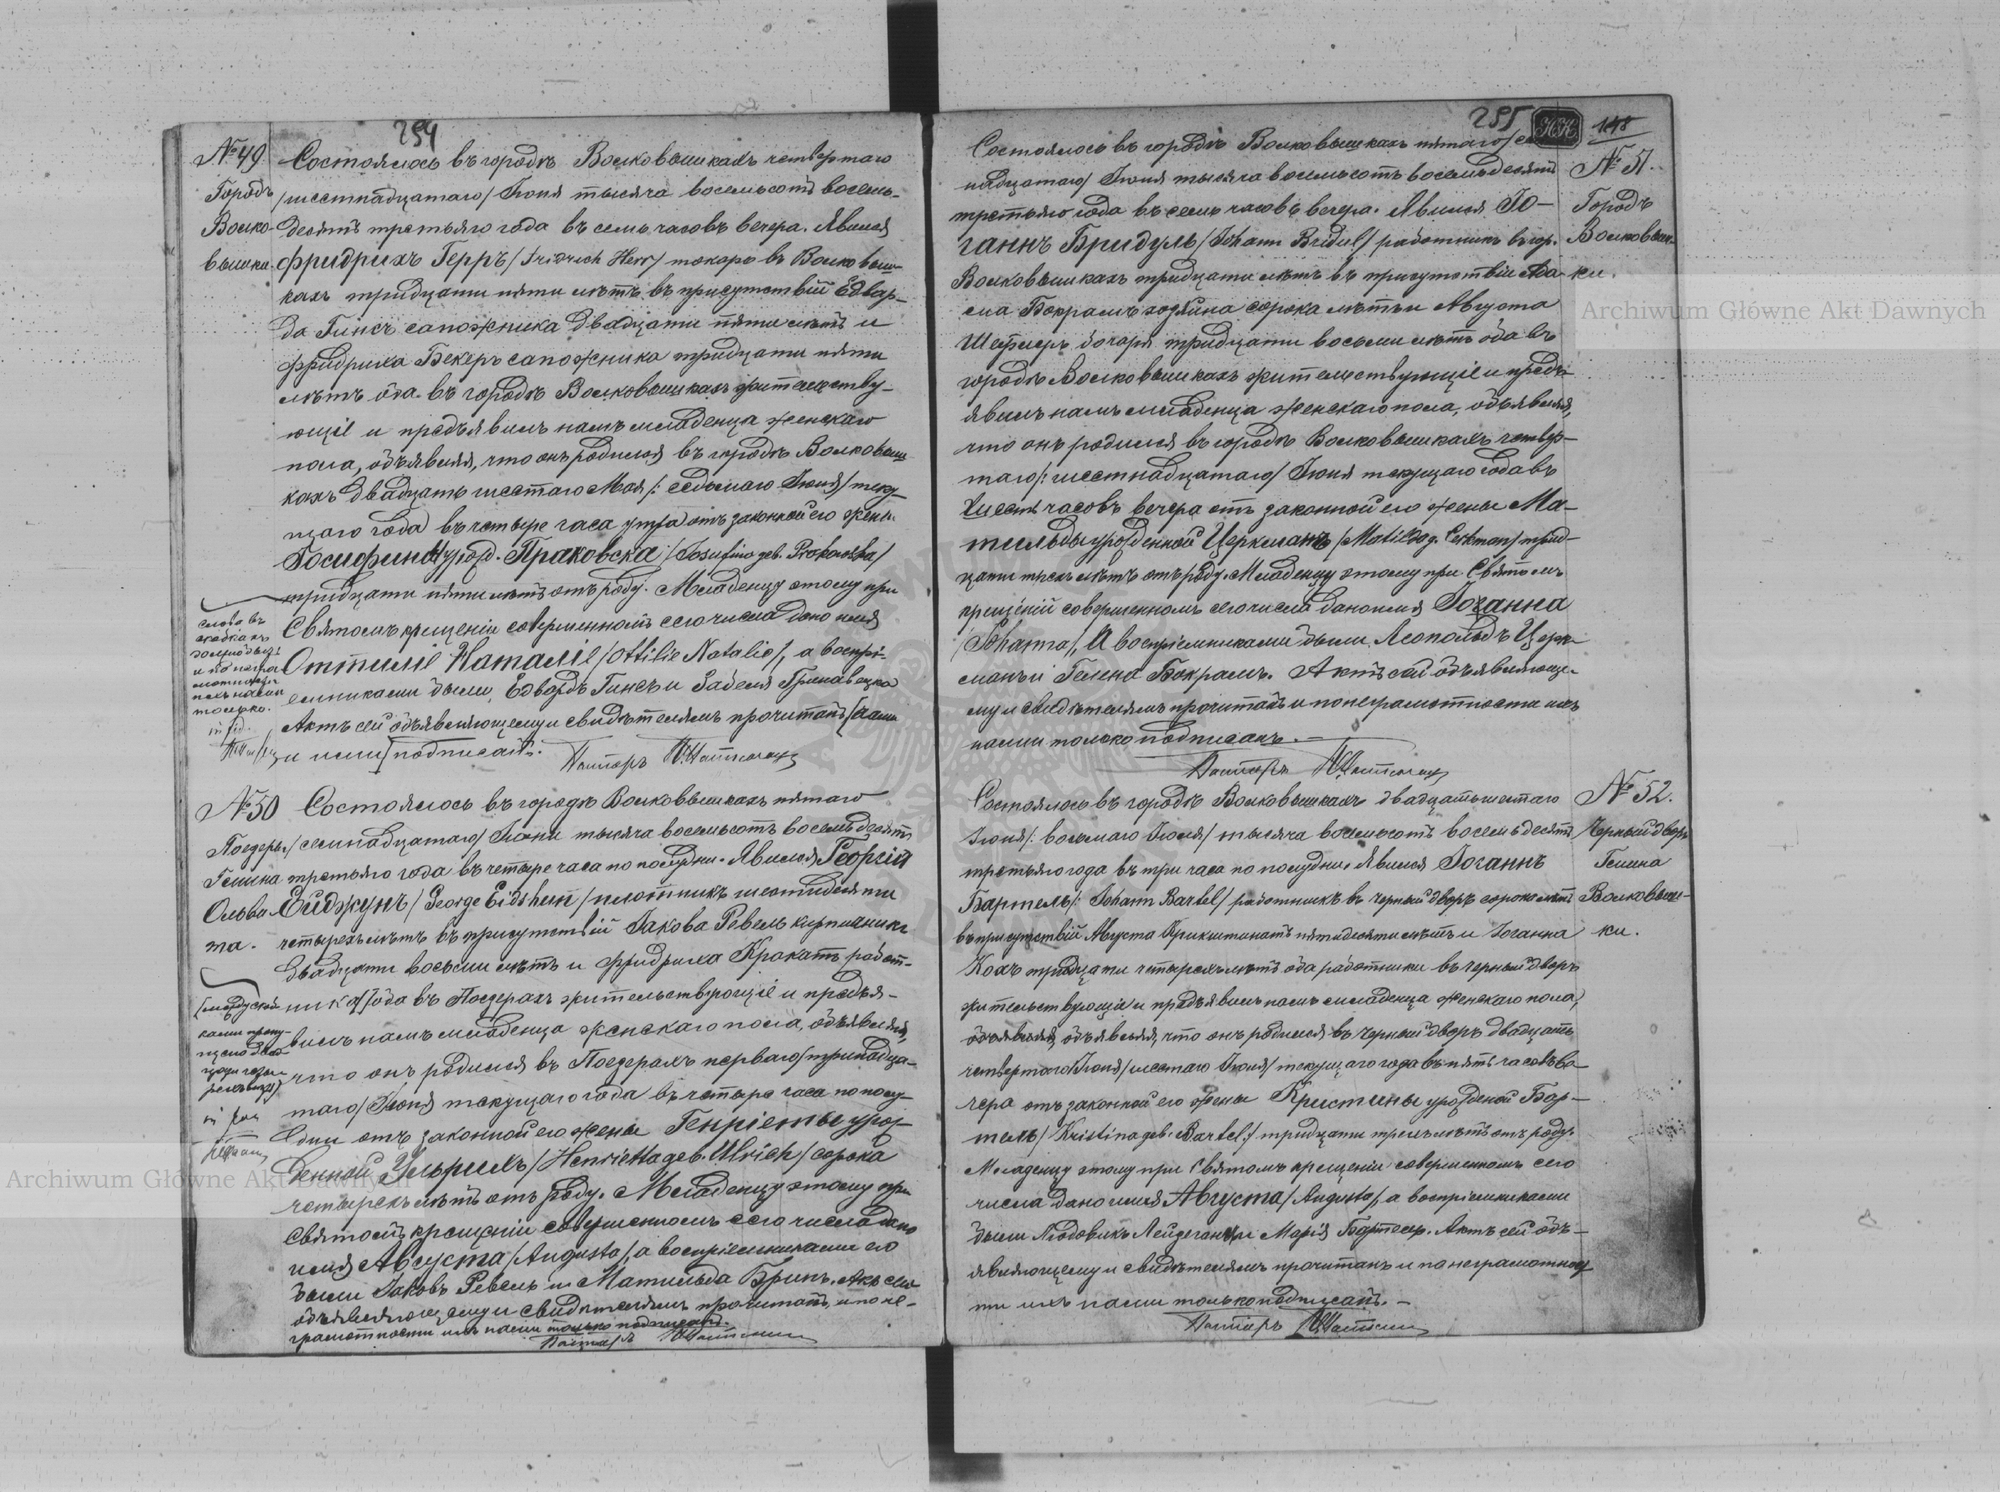 254
№ 49
Городъ
Волко-
вышки
Состоялось въ городѣ Волковышкахъ четвертаго
/шестнадцатаго/ Іюня тысяча восемьсотъ восемь-
десятъ третьяго года въ семь часовъ вечера. Явился
Фридрихъ Герръ /Fridrich Herr/ токарь въ Волковыш-
кахъ тридцати пяти лѣтъ въ присутствіи Едвар-
да Гинсъ сапожника двадцати пяти лѣтъ и
Фридриха Бекеръ сапожника тридцати пяти
лѣтъ оба въ городѣ Волковышкахъ жительству-
ющіе и предъявилъ намъ младенца женскаго
пола, объявляя, что онъ родился въ городѣ Волковыш-
кахъ двадцать шестаго Мая /: седьмаго Іюня/ теку-
щаго года въ четыре часа утра отъ законной его жены
Іосифины урожд. Праковска /Josufina geb. Prokowska/
тридцати пяти лѣтъ отъ роду. Младенцу этому при
Святомъ крещеніи совершенномъ сего числа дано имя
Оттиліе Наталіе /Ottilie Natalie/, а воспрі-
емниками были Едвардъ Гинсъ и Забеля Гринавецка
Актъ сей объявляющему и свидѣтелямъ прочитанъ /нами
и ими/ подписанъ.
Пасторъ
слова въ
скобкахъ
и по негра
мотности
ихъ нами
только.
№ 50
Поедеры
Гмина
Ольви
та.
Состоялось въ городѣ Волковышкахъ пятаго
/семнадцатаго/ Іюня тысяча восемьсотъ восемьдесятъ
третьяго года въ четыре часа по полудни. Явился Георгій
Ейджунъ /George Eidshun/ плотникъ шестидесяти
четырехъ лѣтъ въ присутствіи Іакова Ревель кирпичника
двадцати восьми лѣтъ и Фридриха Крокатъ работ-
ника оба въ Поедерахъ жительствующіе и предъя-
вилъ намъ младенца женскаго пола, объявляя,
что онъ родился въ Поедерахъ перваго /тринадца-
таго/ Іюня текущаго года въ четыре часа по полу-
дни отъ законной его жены Генріеты урож-
денной Ульрихъ /Henrietta geb. Ulrich/ сорока
четырехъ лѣтъ отъ роду. Младенцу этому при
Святомъ крещеніи совершенномъ сего числа дано
имя Августа /Augusta/, а воспріемниками его
были Іаковъ Ревель и Матильда Бринъ. Актъ сей
объявляющему и свидѣтелямъ прочитанъ, и по не-
грамотности ихъ нами только подписанъ.
Пасторъ
255
148
№ 51.
Городъ
Волковыш-
ки.
Состоялось въ городѣ Волковышкахъ пятаго /сем
надцатаго/ Іюня тысяча восемьсотъ восемьдесятъ
третьяго года въ семь часовъ вечера. Явился Іо-
ганнъ Бридуль /Johann Bridul/ работникъ въ гор.
Волковышкахъ тридцати лѣтъ въ присутствіи Ада-
ма Бокрамъ хозяина сорока лѣтъ и Августа
Шефлеръ бочаря тридцати восьми лѣтъ оба въ
городѣ Волковышкахъ жительствующіе и предъ-
явилъ намъ младенца женскаго пола, объявляя,
что онъ родился въ городѣ Волковышкахъ четвер-
таго /: шестнадцатаго/ Іюня текущаго года въ
шесть часовъ вечера отъ законной его жены Ма-
тильды урожденной Церкманъ /Matilda g. Cerkman/ трид-
цати трехъ лѣтъ отъ роду. Младенцу этому при Святомъ
крещеніи совершенномъ сего числа дано имя Іоганна
/Johanna/, а воспріемниками были Леопольдъ Церк-
манъ и Гелена Бокрамъ. Актъ сей объявляюще-
му и свидѣтелямъ прочитанъ и по неграмотности ихъ
нами только подписанъ. —
Пасторъ
№ 52.
Черный дворъ
Гмина
Волковыш-
ки.
Состоялось въ городѣ Волковышкахъ двадцать шестаго
Іюня /: восьмаго Іюля/ тысяча восемьсотъ восемьдесятъ
третьяго года въ три часа по полудни. Явился Іоганнъ
Бартель /: Johann Bartel/ работникъ въ Черный дворъ сорока лѣтъ
въ присутствіи Августа Крикштинатъ пятидесяти лѣтъ и Іоганна
Кохъ тридцати четырехъ лѣтъ оба работники въ Черный дворъ
жительствующіе и предъявилъ намъ младенца женскаго пола,
объявляя, объявляя, что онъ родился въ Черный дворъ двадцать
четвертаго Іюня /шестаго Іюля/ текущаго года въ пять часовъ ве-
чера отъ законной его жены Кристины урожденой Бар-
тель /Kristina geb. Bartel/ тридцати трехъ лѣтъ отъ роду.
Младенцу этому при Святомъ крещеніи совершенномъ сего
числа дано имя Августа /Augusta/, а воспріемниками
были Людовикъ и Марія Бартель. Актъ сей объ-
являющему и свидѣтелямъ прочитанъ и по неграмотнос
ти ихъ нами только подписанъ. —
Пасторъ
Archiwum Główne Akt Dawnych
Archiwum Główne Akt Dawnych